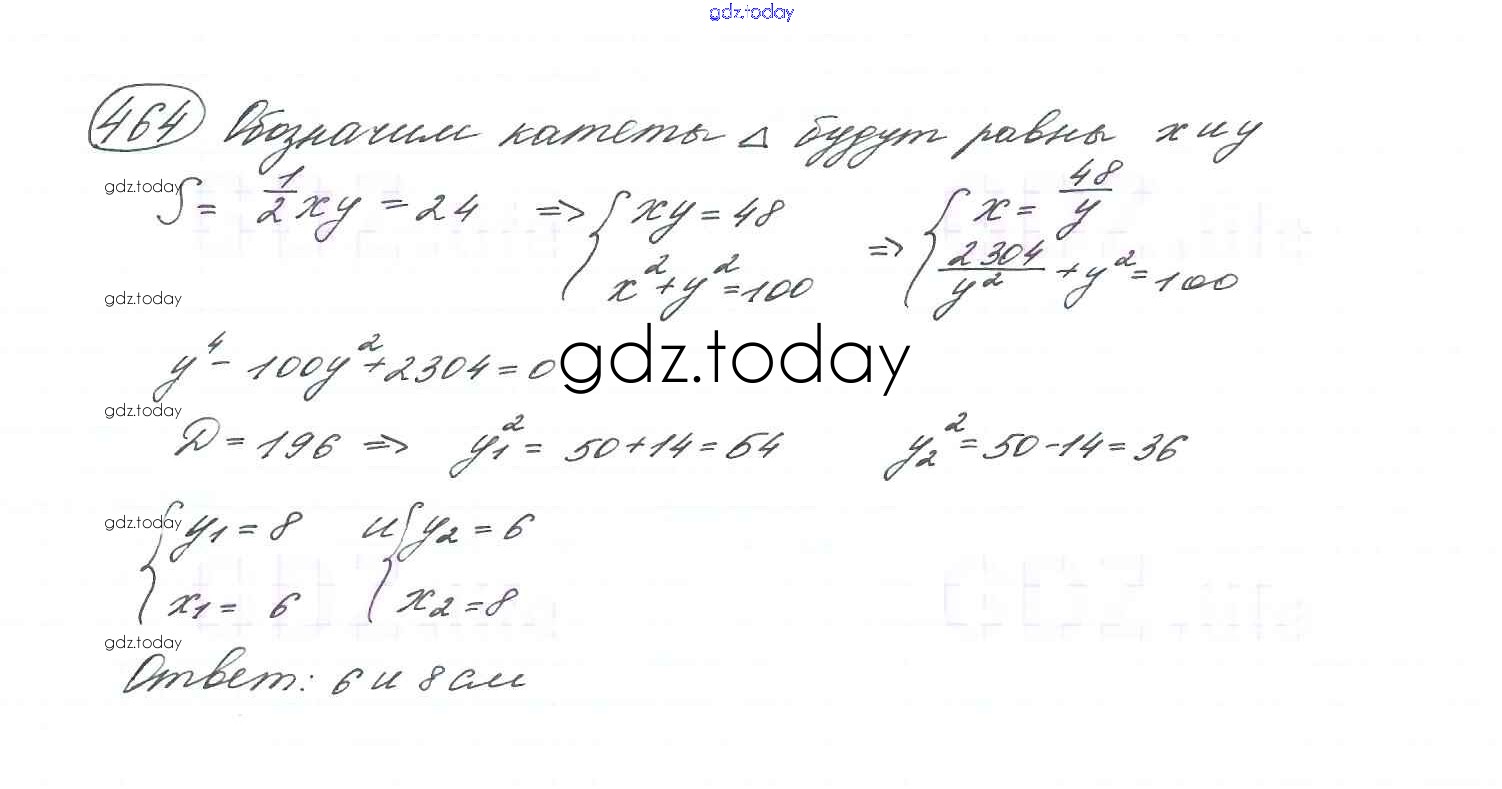 gdz.today
464 Обозначим катеты △ будут равны x и y
gdz.today
S = 1/2 xy = 24 => { xy = 48 => { x = 48/y
x² + y² = 100 2304/y² + y² = 100
gdz.today
y⁴ - 100y² + 2304 = 0
gdz.today
gdz.today
D = 196 => y₁² = 50 + 14 = 64 y₂² = 50 - 14 = 36
gdz.today
{ y₁ = 8 и { y₂ = 6
x₁ = 6 x₂ = 8
gdz.today
Ответ: 6 и 8 см